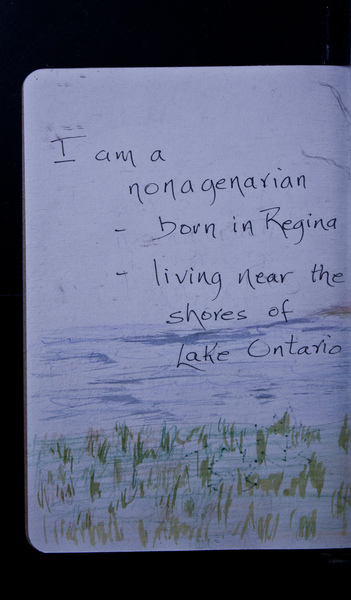 I am a
nonagenarian
- born in Regina
- living near the
shores of
Lake Ontario